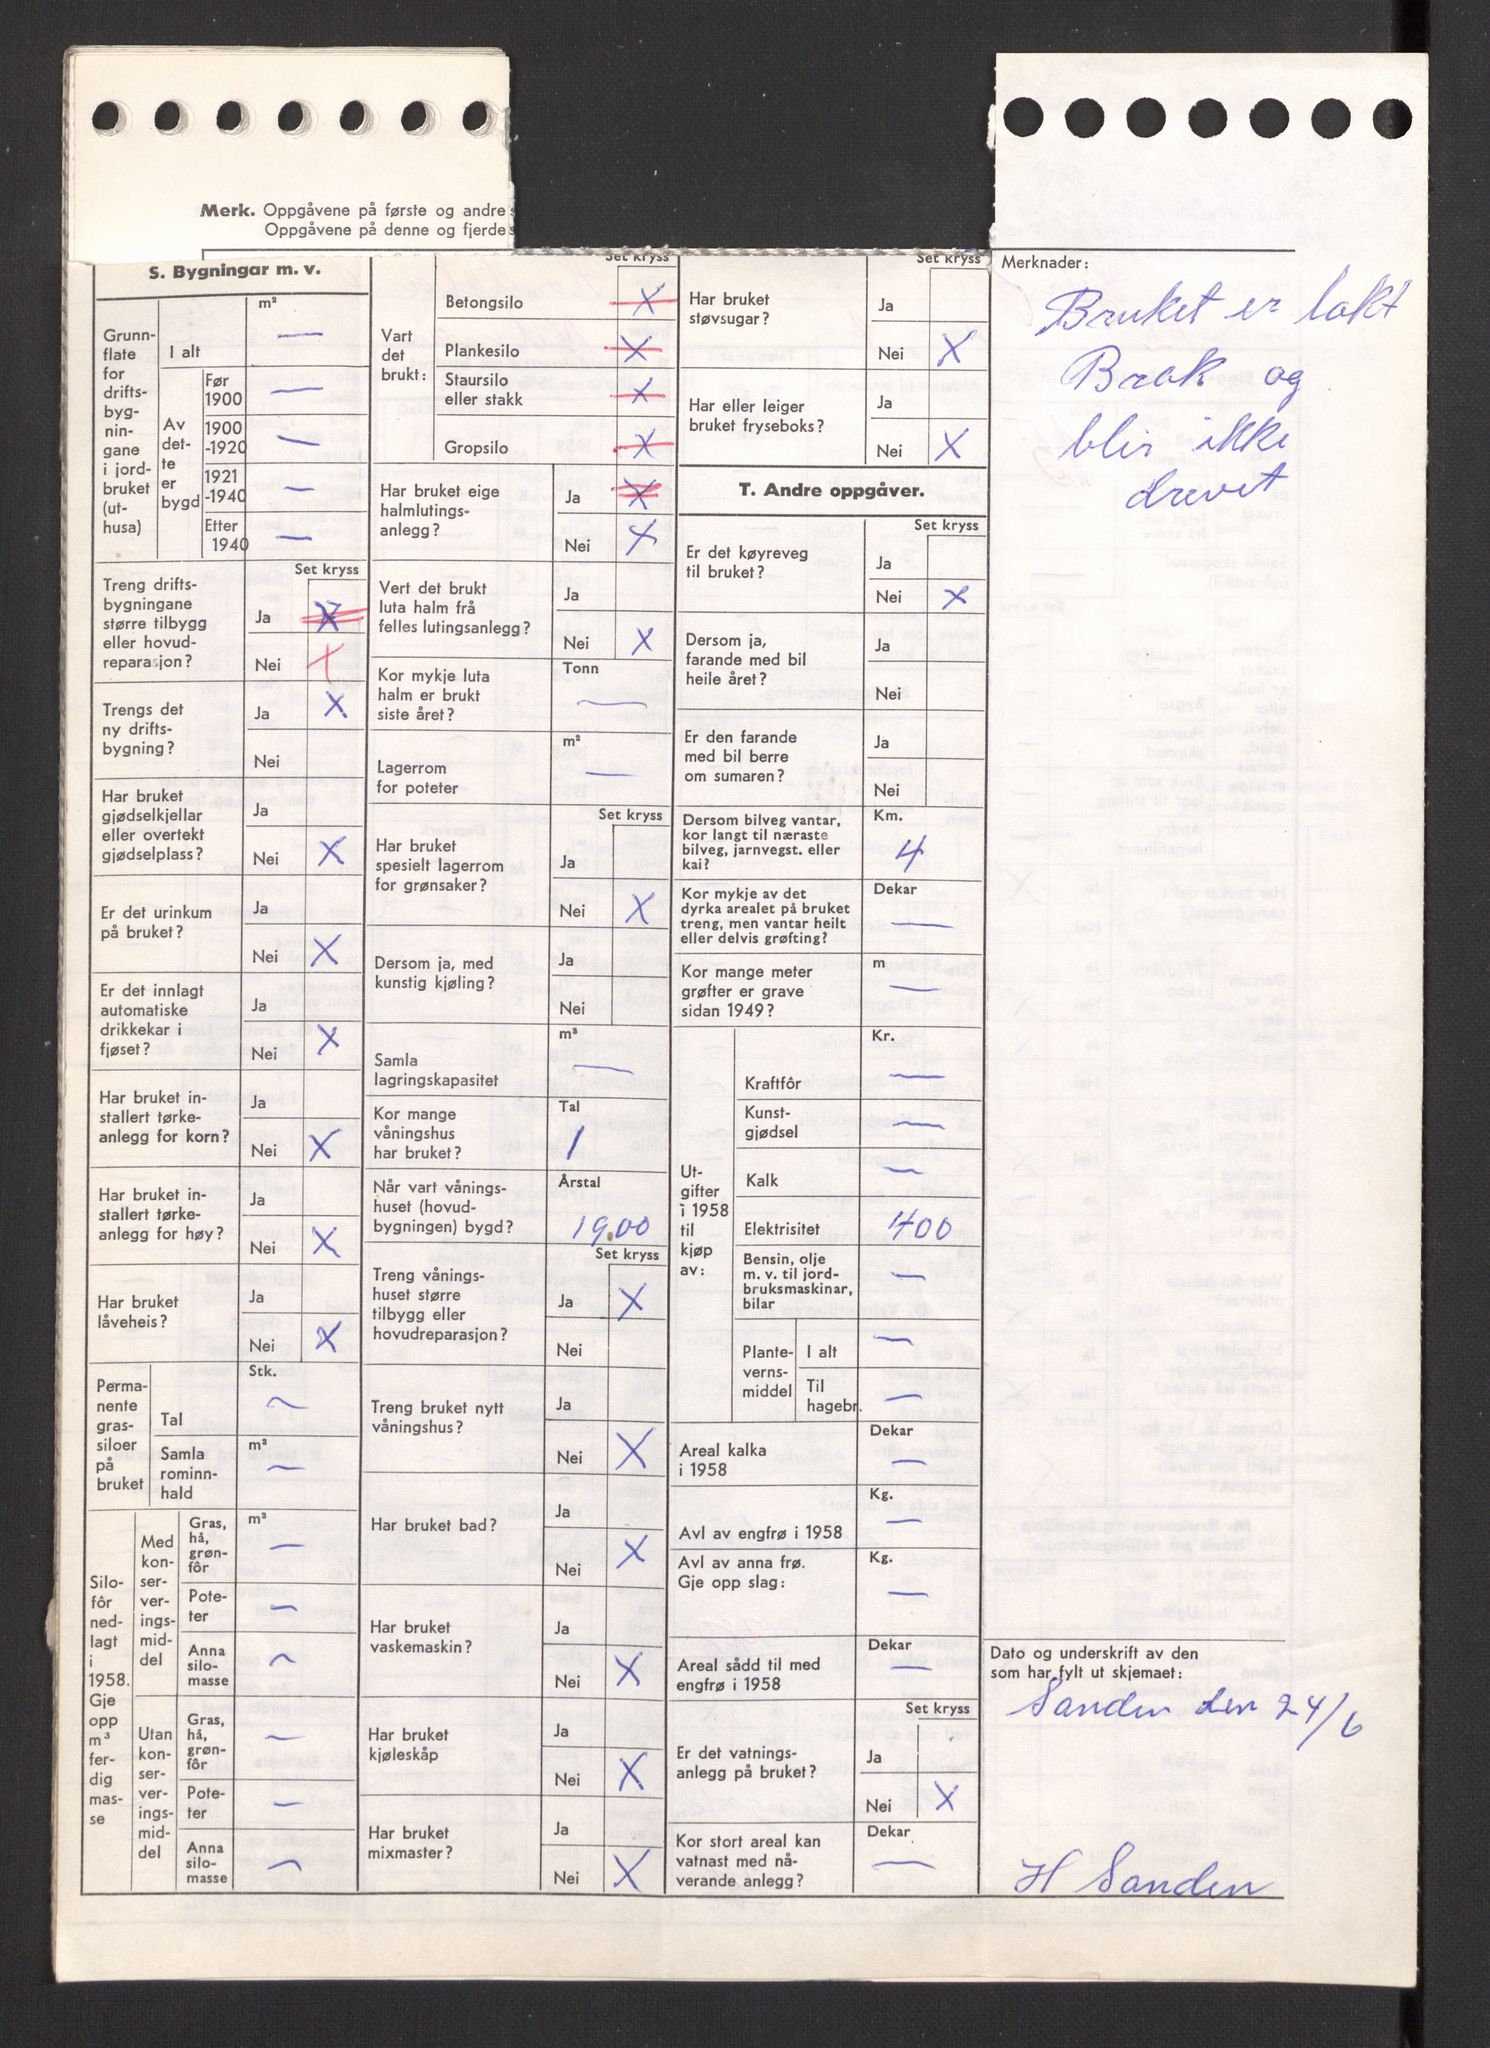 Merk. Oppgåvene på første og andre s
Oppgåvene på denne og fjerde s
S. Bygningar m. v.
Grunn-
flate
for
drifts-
byg-
nin-
gane
i jord-
bruket
(ut-
husa)
m²
I alt —
Av
det-
te
er
bygd
Før
1900 —
1900
-1920 —
1921
-1940 —
Etter
1940 —
Set kryss
Treng drifts-
bygningane
større tilbygg
eller hovud-
reparasjon?
Ja X
Nei X
Trengs det
ny drifts-
bygning?
Ja X
Nei
Har bruket
gjødselkjellar
eller overtekt
gjødselplass?
Ja
Nei X
Er det urinkum
på bruket?
Ja
Nei X
Er det innlagt
automatiske
drikkekar i
fjøset?
Ja
Nei X
Har bruket in-
stallert tørke-
anlegg for korn?
Ja
Nei X
Har bruket in-
stallert tørke-
anlegg for høy?
Ja
Nei X
Har bruket
låveheis?
Ja
Nei X
Perma-
nente
gras-
siloer
på
bruket
Stk.
Tal —
m³
Samla
rominn-
hald —
Silo-
fôr
ned-
lagt
i
1958.
Gje
opp
m³
fer-
dig
mas-
se
Med
kon-
ser-
ver-
ings-
mid-
del
m³
Gras,
hå,
grøn-
fôr —
Pote-
ter —
Anna
silo-
masse —
Utan
kon-
ser-
ver-
ings-
mid-
del
Gras,
hå,
grøn-
fôr —
Pote-
ter —
Anna
silo-
masse —
Set kryss
Vart
det
brukt:
Betongsilo X
Plankesilo X
Staursilo
eller stakk X
Gropsilo X
Har bruket eige
halmlutings-
anlegg?
Ja X
Nei X
Vert det brukt
luta halm frå
felles lutingsanlegg?
Ja
Nei X
Kor mykje luta
halm er brukt
siste året?
Tonn
—
Lagerrom
for poteter
m²
—
Set kryss
Har bruket
spesielt lagerrom
for grønsaker?
Ja
Nei X
Dersom ja, med
kunstig kjøling?
Ja
Nei
Samla
lagringskapasitet
m³
—
Kor mange
våningshus
har bruket?
Tal
1
Når vart vånings-
huset (hovud-
bygningen) bygd?
Årstal
1900
Set kryss
Treng vånings-
huset større
tilbygg eller
hovudreparasjon?
Ja X
Nei
Treng bruket nytt
våningshus?
Ja
Nei X
Har bruket bad?
Ja
Nei X
Har bruket
vaskemaskin?
Ja
Nei X
Har bruket
kjøleskåp
Ja
Nei X
Har bruket
mixmaster?
Ja
Nei X
Set kryss
Har bruket
støvsugar?
Ja
Nei X
Har eller leiger
bruket fryseboks?
Ja
Nei X
T. Andre oppgåver.
Set kryss
Er det køyreveg
til bruket?
Ja
Nei X
Dersom ja,
farande med bil
heile året?
Ja
Nei
Er den farande
med bil berre
om sumaren?
Ja
Nei
Dersom bilveg vantar,
kor langt til næraste
bilveg, jarnvegst. eller
kai?
Km.
4
Kor mykje av det
dyrka arealet på bruket
treng, men vantar heilt
eller delvis grøfting?
Dekar
—
Kor mange meter
grøfter er grave
sidan 1949?
m
—
Ut-
gifter
i 1958
til
kjøp
av:
Kr.
Kraftfôr —
Kunst-
gjødsel —
Kalk —
Elektrisitet 400
Bensin, olje
m. v. til jord-
bruksmaskinar,
bilar —
Plante-
verns-
middel
I alt —
Til
hagebr. —
Areal kalka
i 1958
Dekar
—
Avl av engfrø i 1958
Kg.
—
Avl av anna frø.
Gje opp slag:
Kg.
—
Areal sådd til med
engfrø i 1958
Dekar
—
Set kryss
Er det vatnings-
anlegg på bruket?
Ja
Nei X
Kor stort areal kan
vatnast med nå-
verande anlegg?
Dekar
—
Merknader:
Bruket er lakt
Brak og
blir ikke
drevet
Dato og underskrift av den
som har fylt ut skjemaet:
Sanden den 24/6
H Sanden